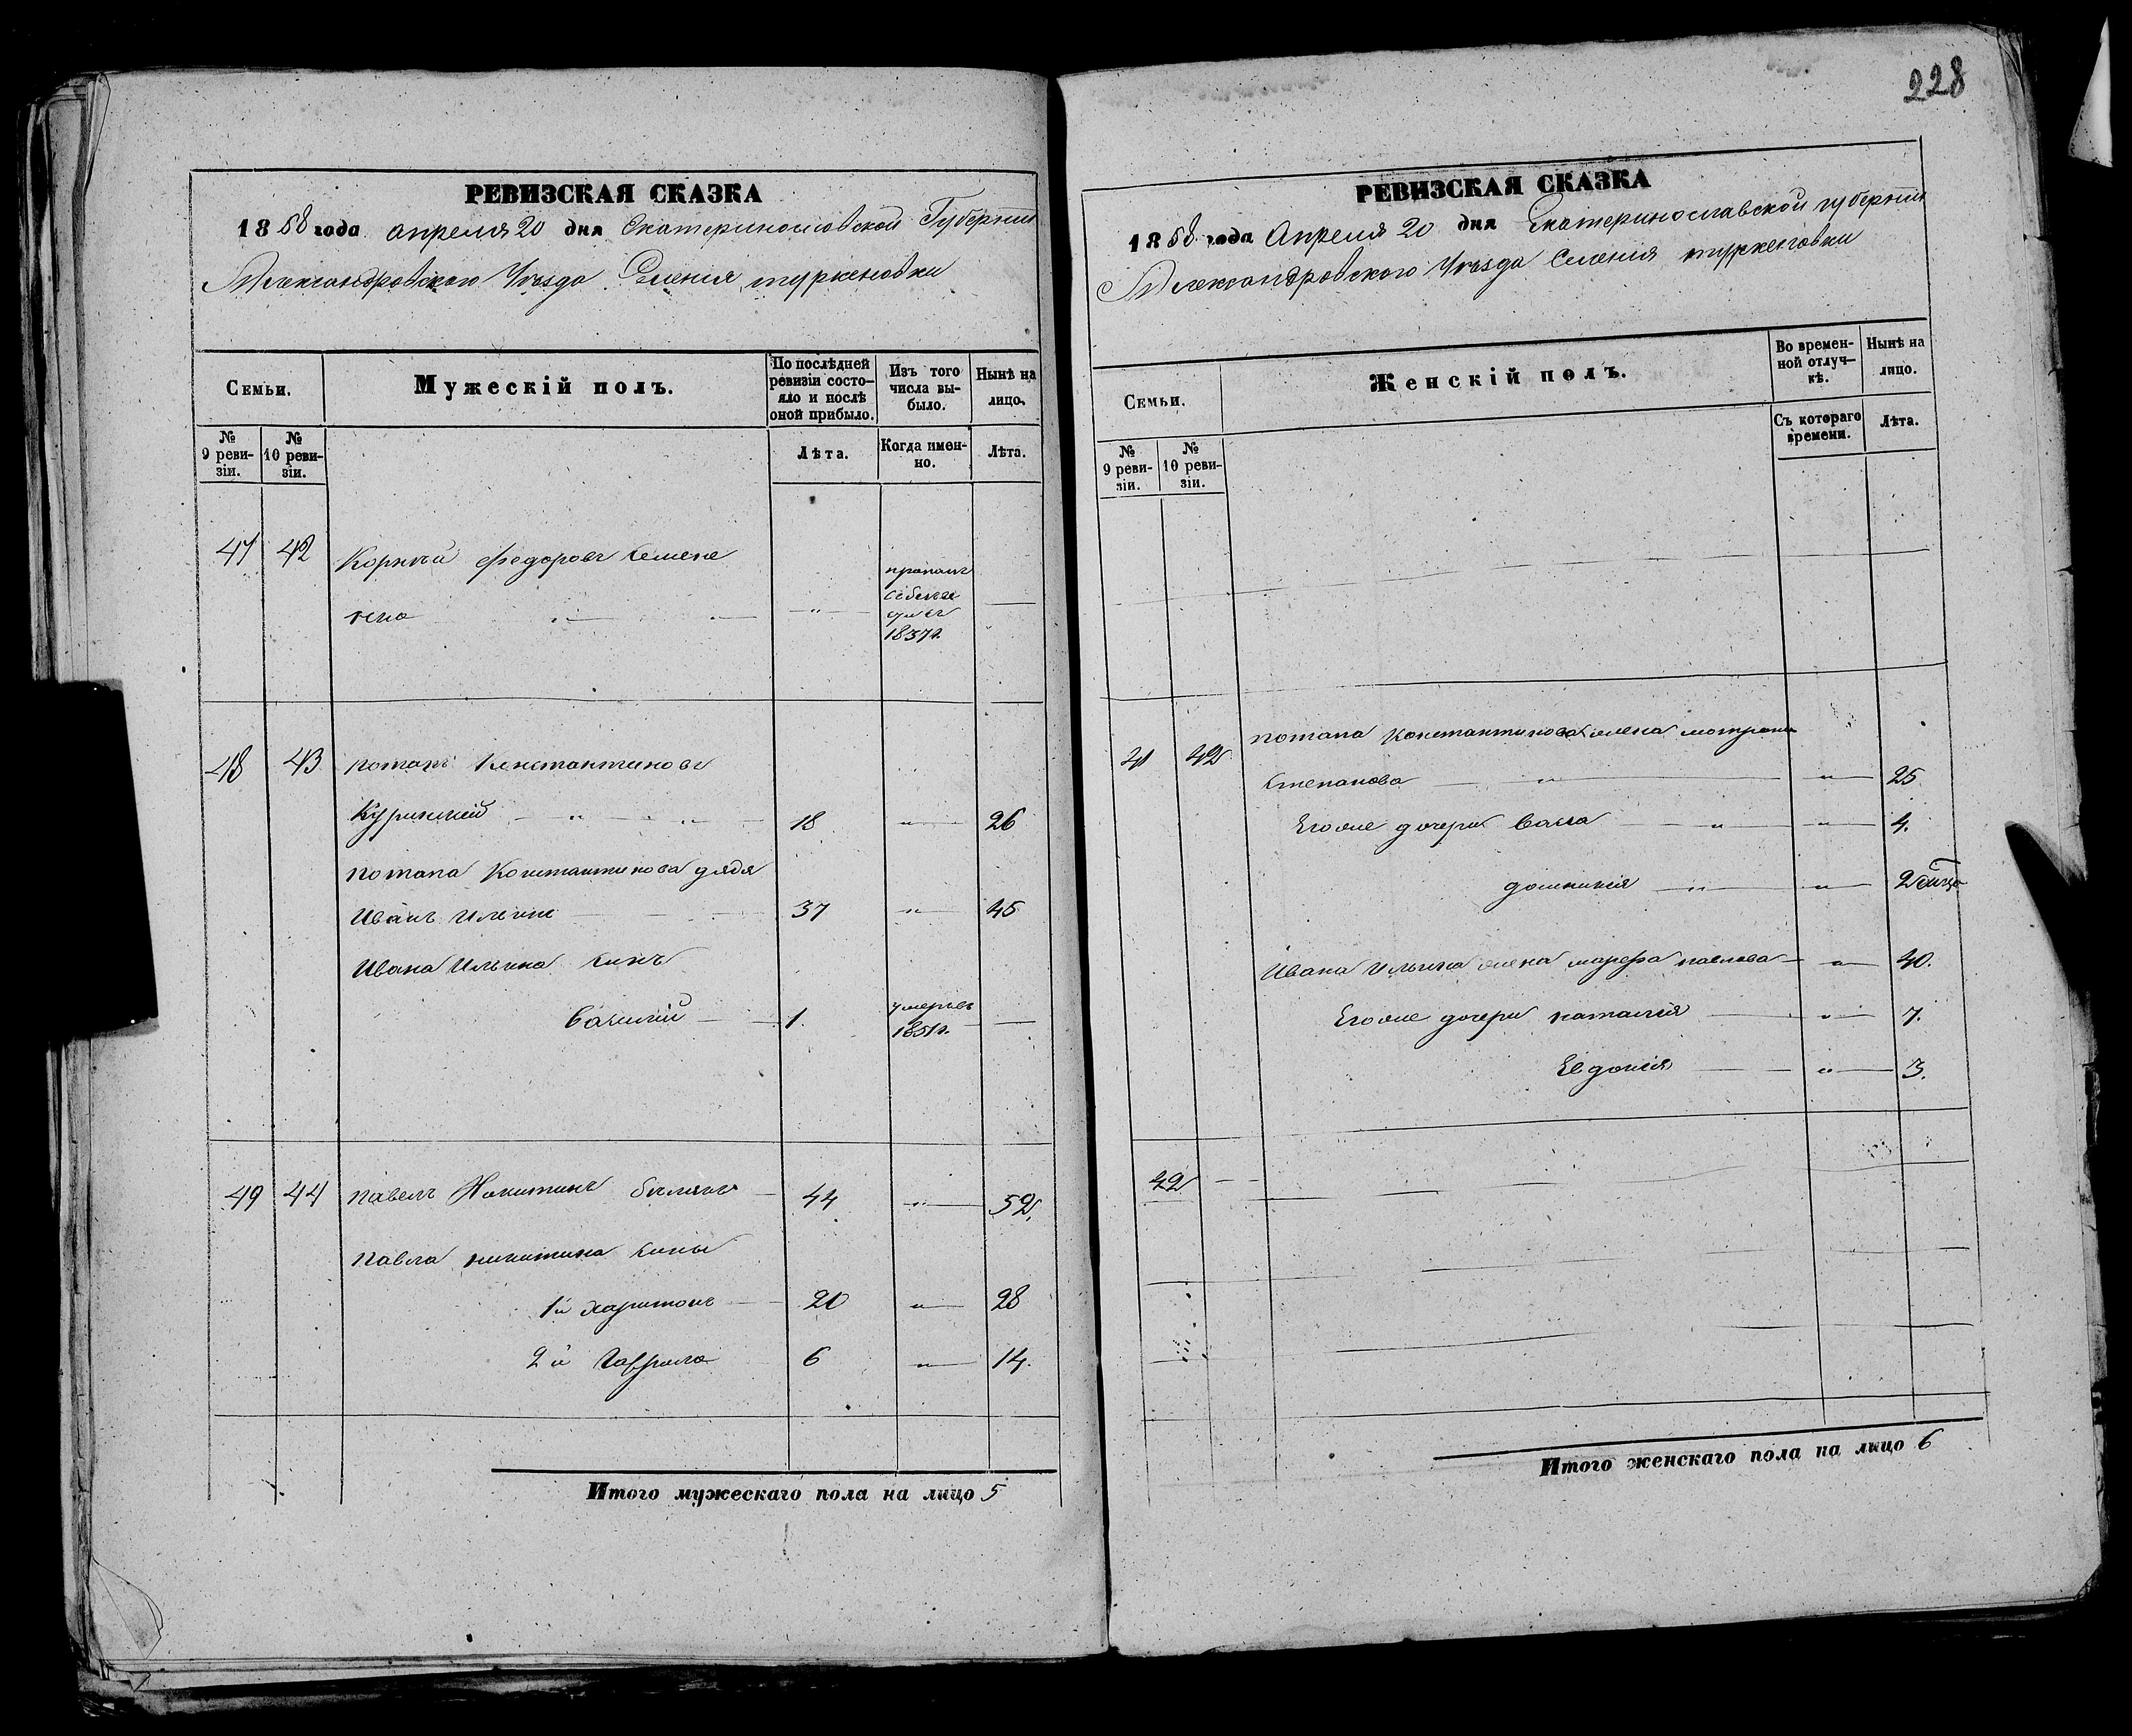 228
РЕВИЗСКАЯ СКАЗКА
1858 года апреля 20 дня Екатеринославской Губернии
Александровского Уезда Селения туркеновки
Семьи.
Мужескій полъ.
По послѣдней ревизіи состо-
яло и послѣ
оной прибыло.
Изъ того
числа вы-
было.
Нынѣ на
лицо.
№
9 реви-
зіи.
№
10 реви-
зіи.
Лѣта.
Когда имен-
но.
Лѣта.
47 42 Корнѣй Федоровъ Семене
нко
пропалъ
1837г.
48 43 потапъ Константиновъ
18 " 26
потапа Константинова дядя
Иванъ Ильинъ 37 " 45
Ивана Ильина сынъ
Василий 1. умеръ
1851г.
49 44 павелъ Никитинъ 44 " 52.
павла никитина сыны
1й харитонъ 20 " 28
2й Гаврило 6 " 14.
Итого мужескаго пола на лицо 5
РЕВИЗСКАЯ СКАЗКА
1858 года Апреля 20 дня Екатеринославской губернии
Александровского Уезда Селения туркеновки
Семьи.
Женскій полъ.
Во времен-
ной отлуч-
кѣ.
Нынѣ на
лицо.
№
9 реви-
зіи.
№
10 реви-
зіи.
Съ котораго
времени.
Лѣта.
41 42 потапа Константинова жена мотрона
Степанова " " 25
Егоже дочери Васса " " 4.
домникия " " 2
Ивана Ильина жена марфа павлова " 40.
Егоже дочери наталия " 7.
Евдокия " 3.
42
Итого женскаго пола на лицо 6